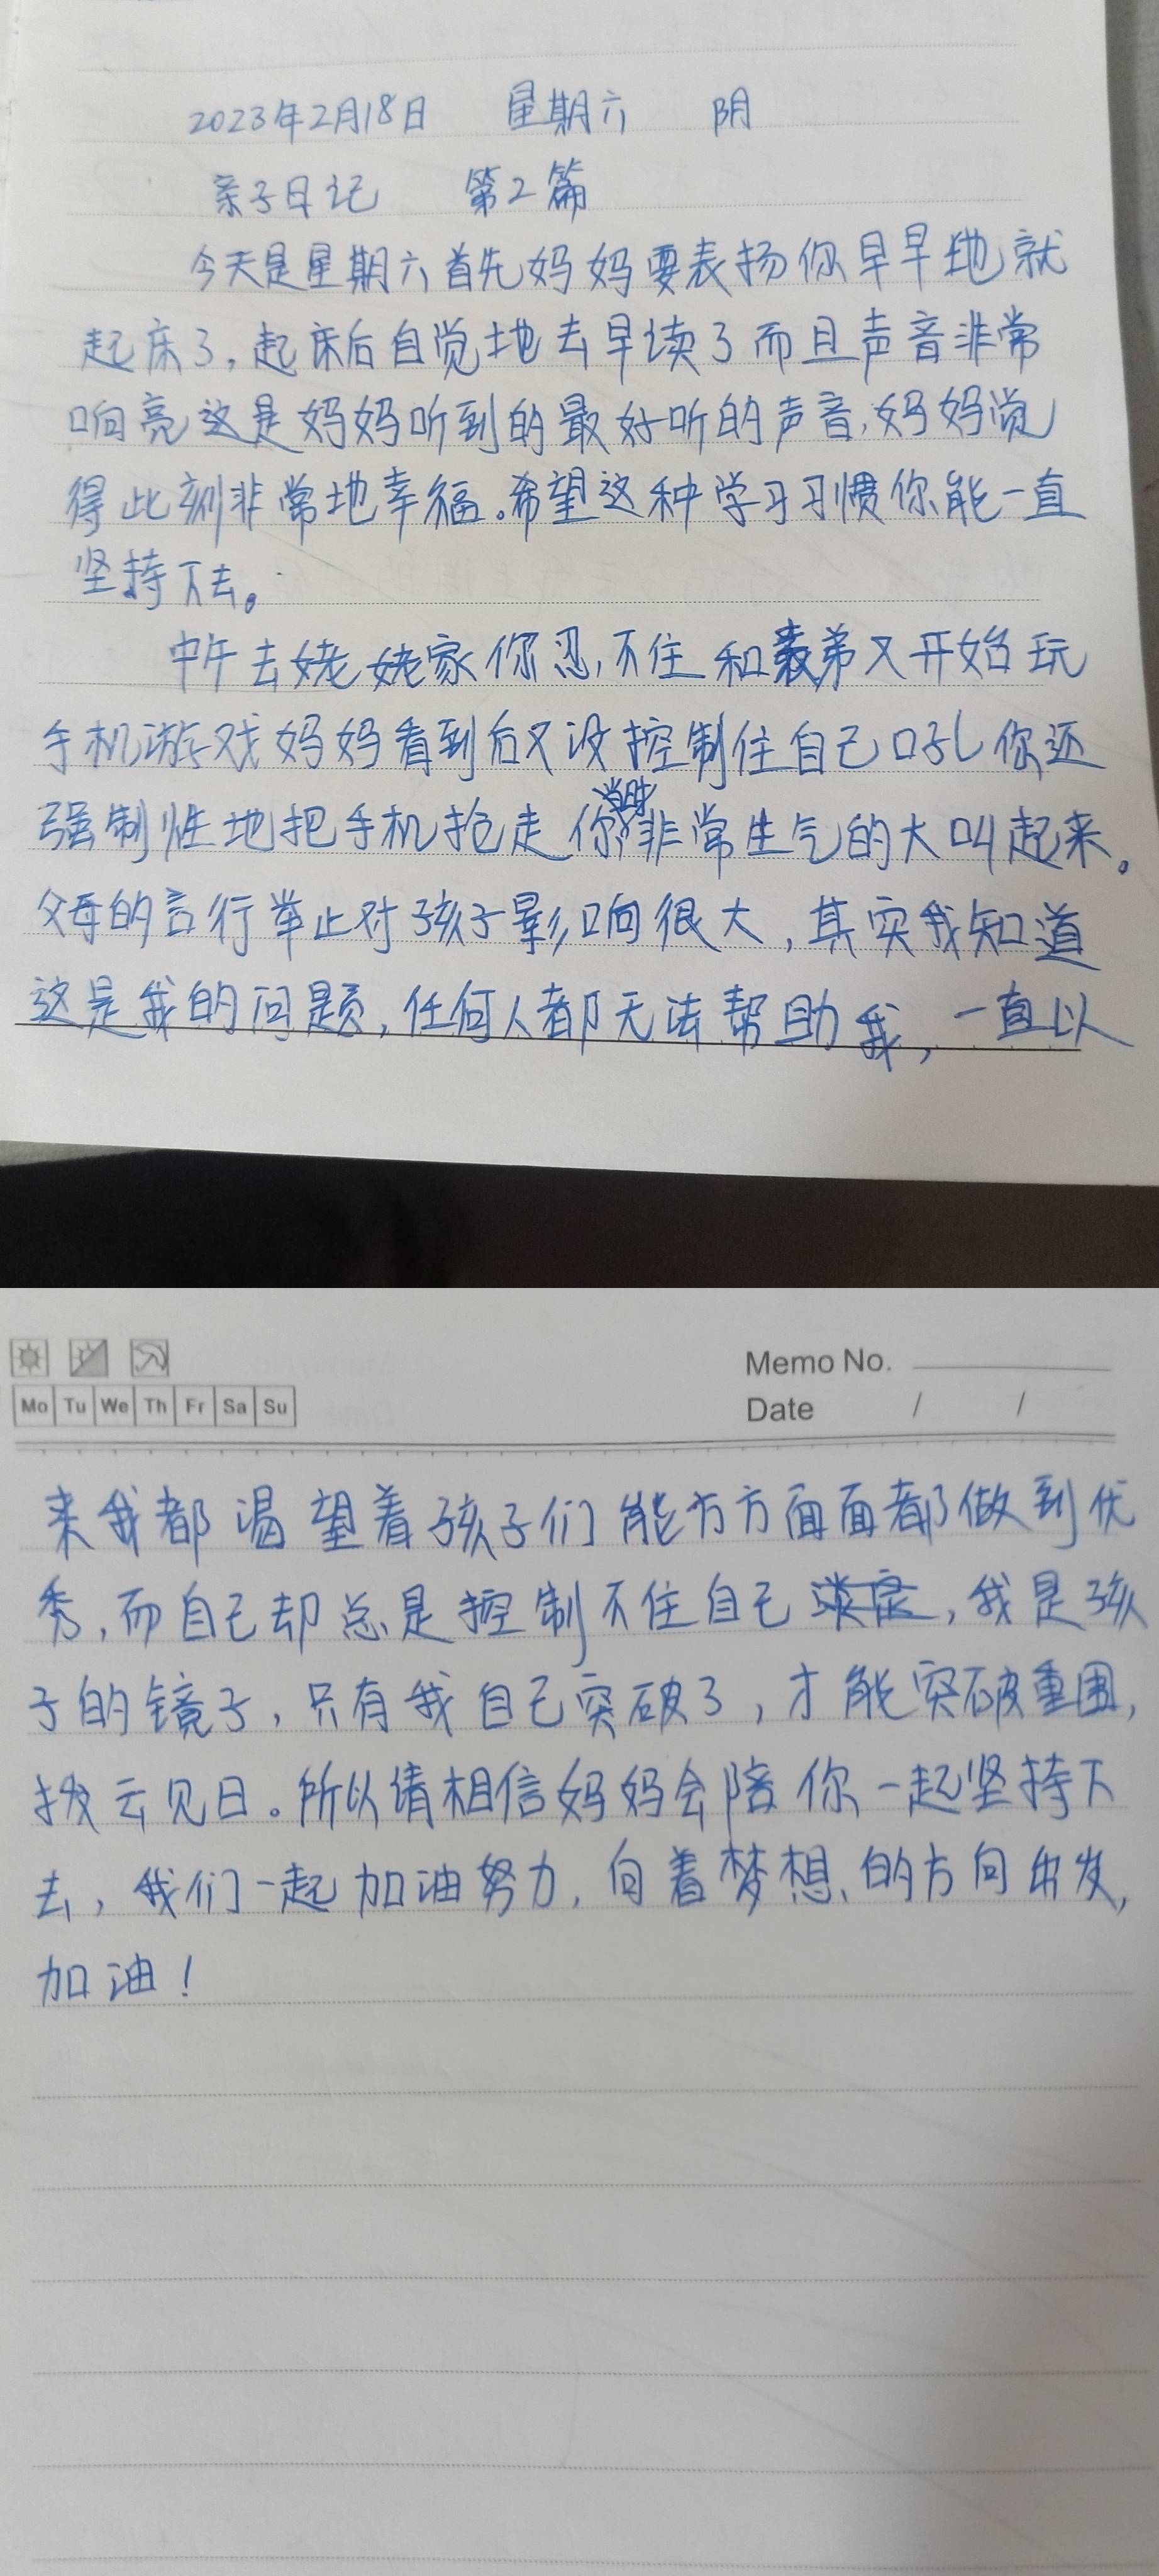 2023年2月18日 星期六 阴
亲子日记 第2篇
今天是星期六首先妈妈要表扬你早早地就
起床了,起床后自觉地去早读了而且声音非常
响亮这是妈妈听到的最好听的声音,妈妈觉
得此刻非常地幸福。希望这种学习习惯你能一直
坚持下去。
中午去姥姥家你忍不住和表弟又开始玩
手机游戏妈妈看到后又没控制住自己吼你还
强制性地把手机抢走你当时非常生气的大叫起来。
父母的言行举止对孩子影响很大,其实我知道
这是我的问题,任何人都无法帮助我,一直以
Mo Tu We Th Fr Sa Su
Memo No.
Date / /
来我都渴望着孩子们能方方面面都做到优
秀,而自己却总是控制不住自己,我是孩
子的镜子,只有我自己突破了,才能突破重围,
拨云见日。所以请相信妈妈会陪你一起坚持下
去,我们一起加油努力,向着梦想的方向出发,
加油!